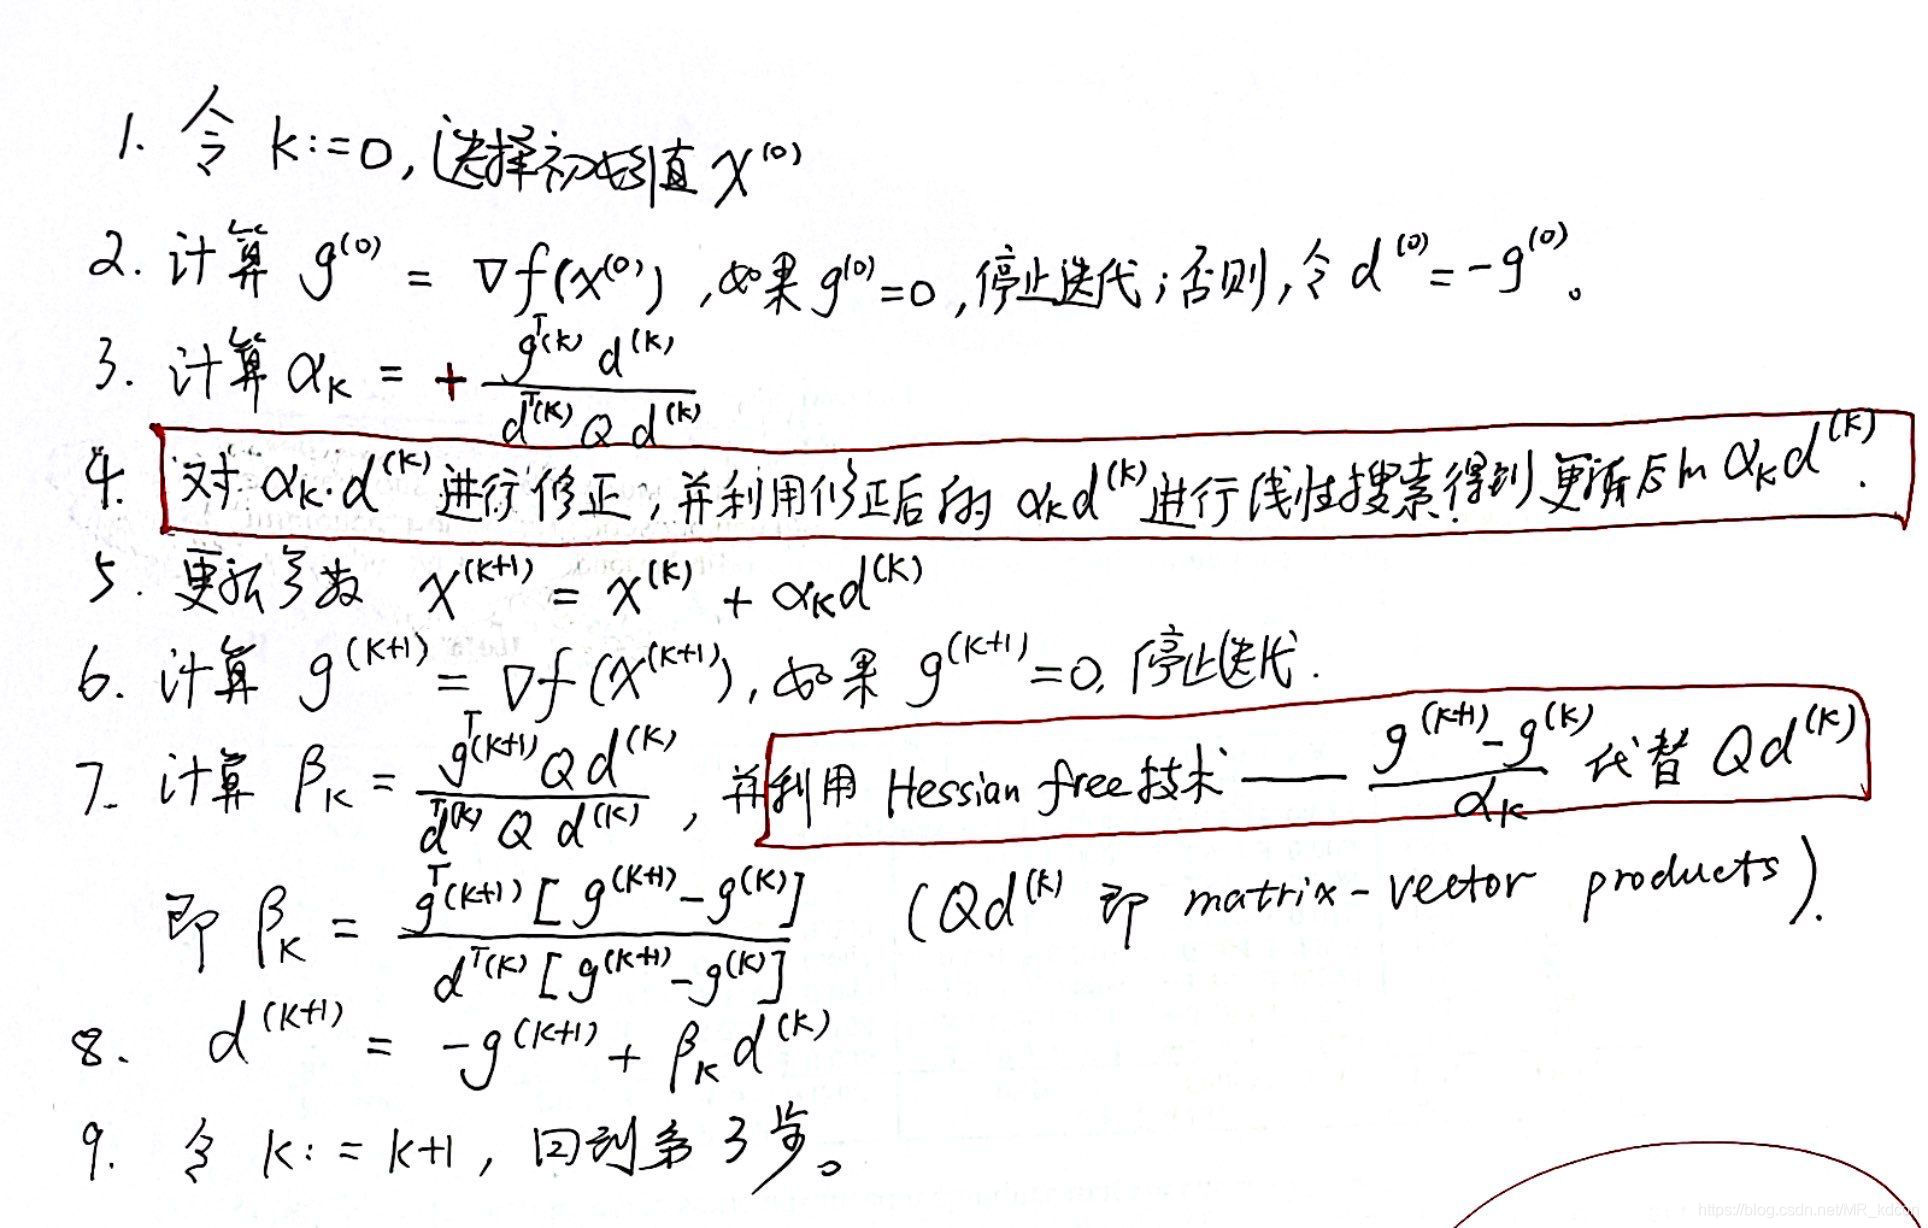 1. 令 k:=0, 选择初始值 x^(0)
2. 计算 g^(0) = ∇f(x^(0)), 如果 g^(0)=0, 停止迭代; 否则, 令 d^(0) = -g^(0)。
3. 计算 α_k = + g^T(k) d^(k) / d^T(k) Q d^(k)
4. 对 α_k·d^(k) 进行修正, 并利用修正后的 α_k d^(k) 进行线性搜索得到更新后的 α_k d^(k).
5. 更新参数 x^(k+1) = x^(k) + α_k d^(k)
6. 计算 g^(k+1) = ∇f(x^(k+1)), 如果 g^(k+1)=0, 停止迭代.
7. 计算 β_k = g^T(k+1) Q d^(k) / d^T(k) Q d^(k), 并利用 Hessian free 技术 —— g^(k+1) - g^(k) / α_k 代替 Q d^(k)
即 β_k = g^T(k+1) [g^(k+1) - g^(k)] / d^T(k) [g^(k+1) - g^(k)] (Qd^(k) 即 matrix-vector products).
8. d^(k+1) = -g^(k+1) + β_k d^(k)
9. 令 k:=k+1, 回到第3步。